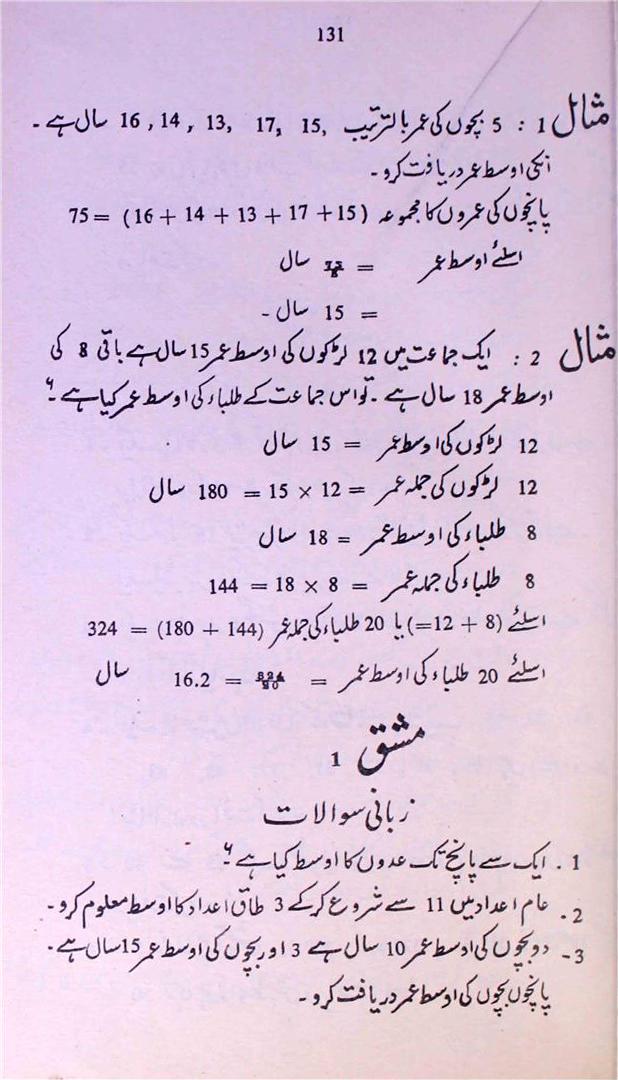 131
مثال 1 : 5 بچوں کی عمر بالترتیب 15, 17, 13, 14, 16 سال ہے۔
انکی اوسط عمر دریافت کرو۔
پانچوں کی عمروں کا مجموعہ (15 + 17 + 13 + 14 + 16) = 75
اسلئے اوسط عمر = 75/5 سال
= 15 سال۔
مثال 2 : ایک جماعت میں 12 لڑکوں کی اوسط عمر 15 سال ہے باقی 8 کی
اوسط عمر 18 سال ہے۔ تو اس جماعت کے طلباء کی اوسط عمر کیا ہے؟
12 لڑکوں کی اوسط عمر = 15 سال
12 لڑکوں کی جملہ عمر = 12 × 15 = 180 سال
8 طلباء کی اوسط عمر = 18 سال
8 طلباء کی جملہ عمر = 8 × 18 = 144
اسلئے (8 + 12=) یا 20 طلباء کی جملہ عمر (144 + 180) = 324
اسلئے 20 طلباء کی اوسط عمر = 324/20 = 16.2 سال
مشق 1
زبانی سوالات
1. ایک سے پانچ تک عدوں کا اوسط کیا ہے؟
2. عام اعداد میں 11 سے شروع کرکے 3 طاق اعداد کا اوسط معلوم کرو۔
3- دو بچوں کی اوسط عمر 10 سال ہے 3 اور بچوں کی اوسط عمر 15 سال ہے۔
پانچوں بچوں کی اوسط عمر دریافت کرو۔